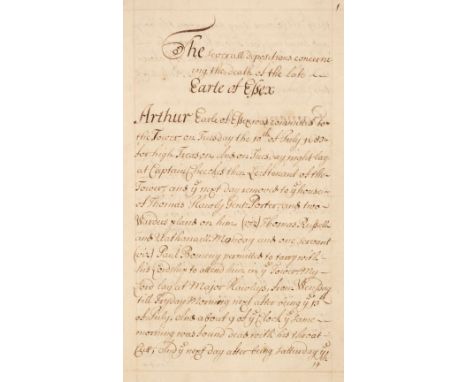 1
The severall depositions concerne
ing the death of the late
Earle of Essex
Arthur Earle of Essex was committed to
the Tower on Tuesday the 10th of July 1683
for high Treason, and on Tuesday night lay
at Captain Cheeks the Lieutenant of the
Tower, and ye next day removed to ye house
of Thomas Hawly Gent Porter, and two
Warders plac'd on him (viz) Thomas Russell
and Nathanael Monday and one servant
(viz) Paul Bomeny permitted to tarry with
his Lordship to attend him in ye Tower, My
Lord lay at Major Hawlys, from Wensday
till Fryday Morning next after being ye 13th
of July, and about 9 of ye Clock ye same
morning was found dead with his throat
Cut, And ye next day after being Satturday ye
14